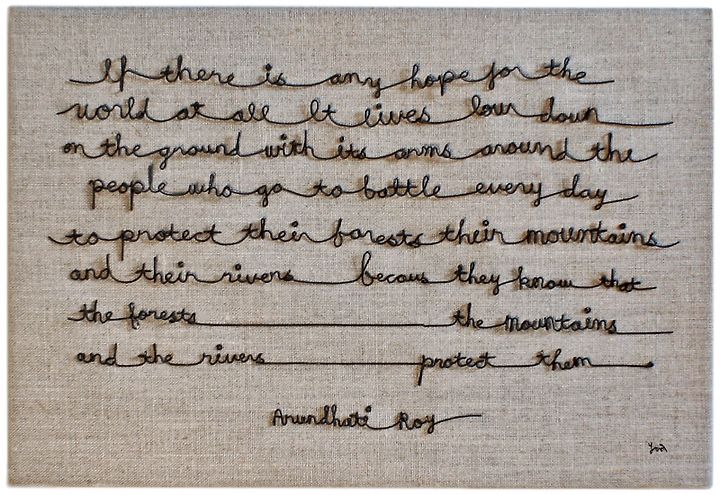 If there is any hope for the
world at all It lives low down
on the ground with its arms around the
people who go to battle every day
to protect their forests their mountains
and their rivers becaus they know that
the forests the mountains
and the rivers protect them
Arundhati Roy